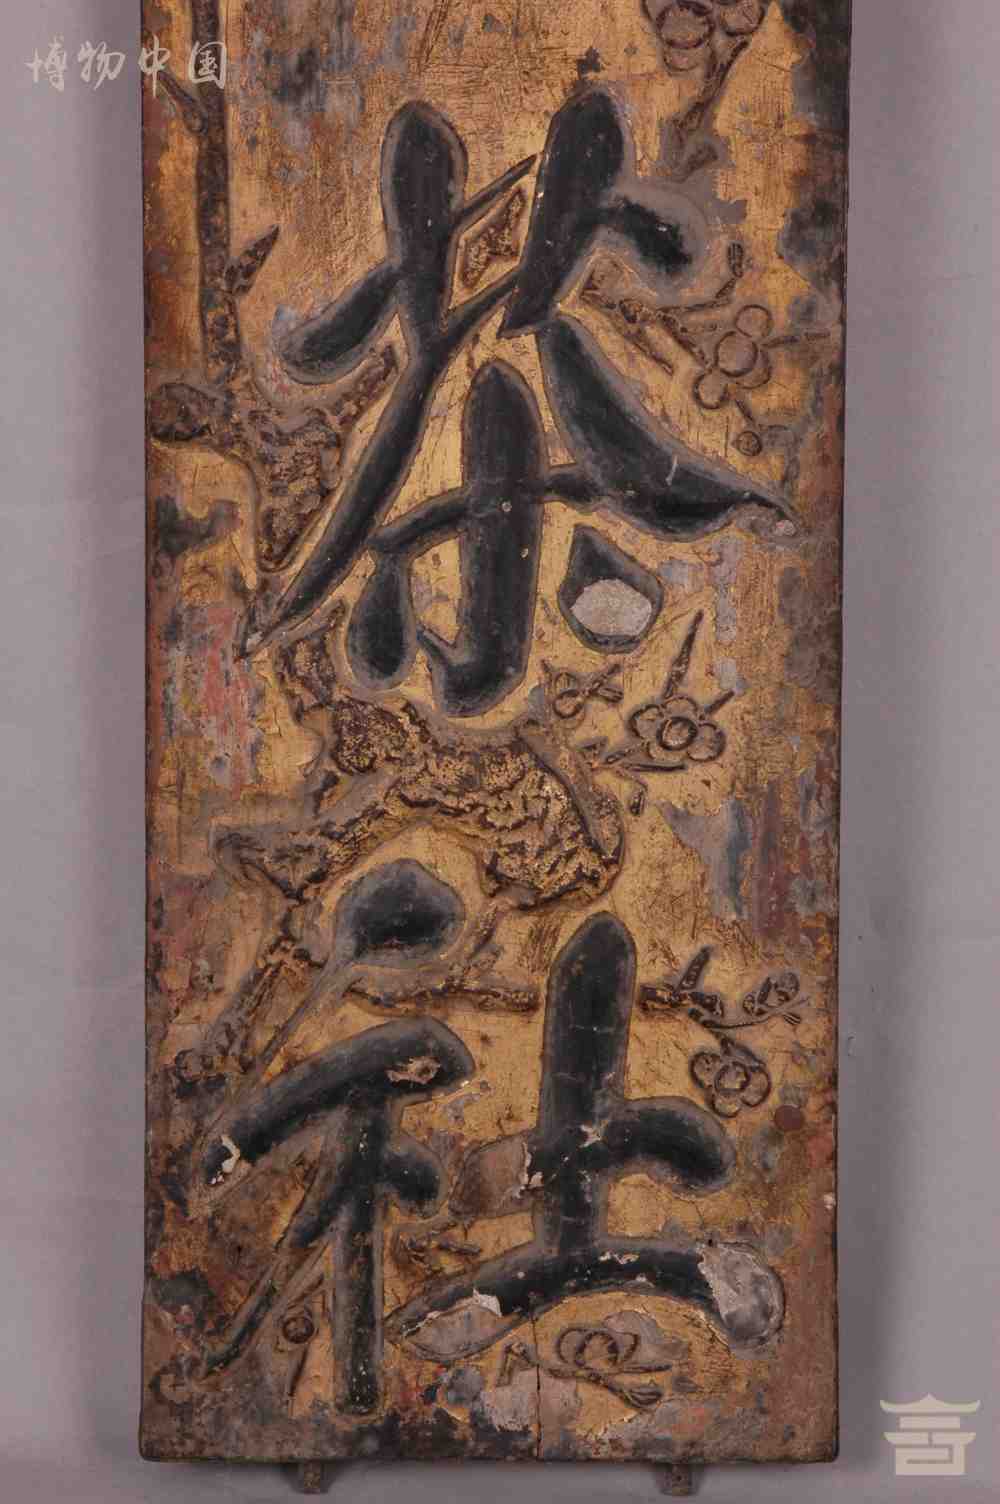 博物中国
茶社